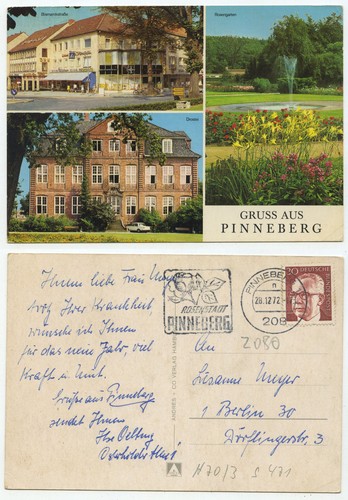 Bismarckstraße
Rosengarten
Drostei
GRUSS AUS
PINNEBERG
Ihnen liebe Frau Meyer
trotz Ihrer Krankheit,
wünsche ich Ihnen
für das neue Jahr, viel
Kraft u. Mut.
Grüße aus Pinneberg
sendet Ihnen
Ihre
ROSENSTADT
PINNEBERG
PINNEBERG
n
28.12.72
208
30
DEUTSCHE
2080
ANDRES + CO VERLAG HAMBURG
An
Susanne Meyer
1 Berlin 30
Dörflingerstr. 3
H 70/3 S 471